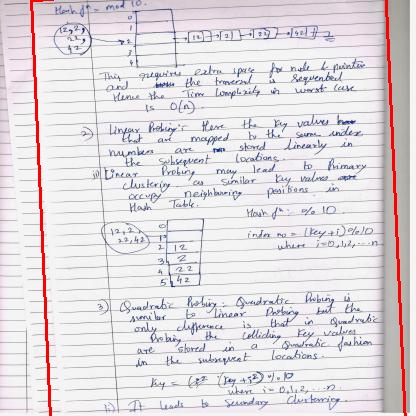 Hash fⁿ = mod 10.
0
1
12, 2,
22,
42
2
12 2 22 42
3
4
This requires extra space for node & pointer
and the traversal is sequential
Hence the Time Complexity in worst case
is O(n).
2) Linear Probing:- Here the key values
that are mapped to the same index
numbers are stored linearly in
the subsequent locations.
ii) Linear Probing may lead to Primary
clustering as similar key values
occupy neighbouring positions in
Hash Table.
Hash fⁿ: % 10
12, 2
22, 42
0
1
2 12
3 2
4 22
5 42
index no = (key+i) % 10
where i=0,1,2,...n
3) Quadratic Probing:- Quadratic Probing is
similar to linear Probing but the
only difference is that in Quadratic
Probing the colliding key values
are stored in a Quadratic fashion
in the subsequent locations.
Key = (key + i²) % 10
where i = 0,1,2,...n.
ii) It leads to Secondary Clustering.